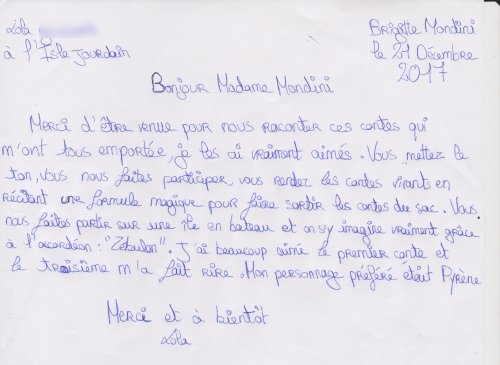 Lola
Brigitte Mondini
à l'Isle Jourdain
le 21 Décembre
2017
Bonjour Madame Mondini
Merci d'être venue pour nous raconter ces contes qui
m'ont tous emportée, je les ai vraiment aimés. Vous mettez le
ton, vous nous faites participer, vous rendez les contes vivants en
récitant une formule magique pour faire sortir les contes du sac. Vous
nous faites partir sur une île en bateau et on s'y imagine vraiment grâce
à l'accordéon : "Zébulon". J'ai beaucoup aimé le premier conte et
le troisième m'a fait rire. Mon personnage préféré était Pyrène
Merci et à bientôt
Lola